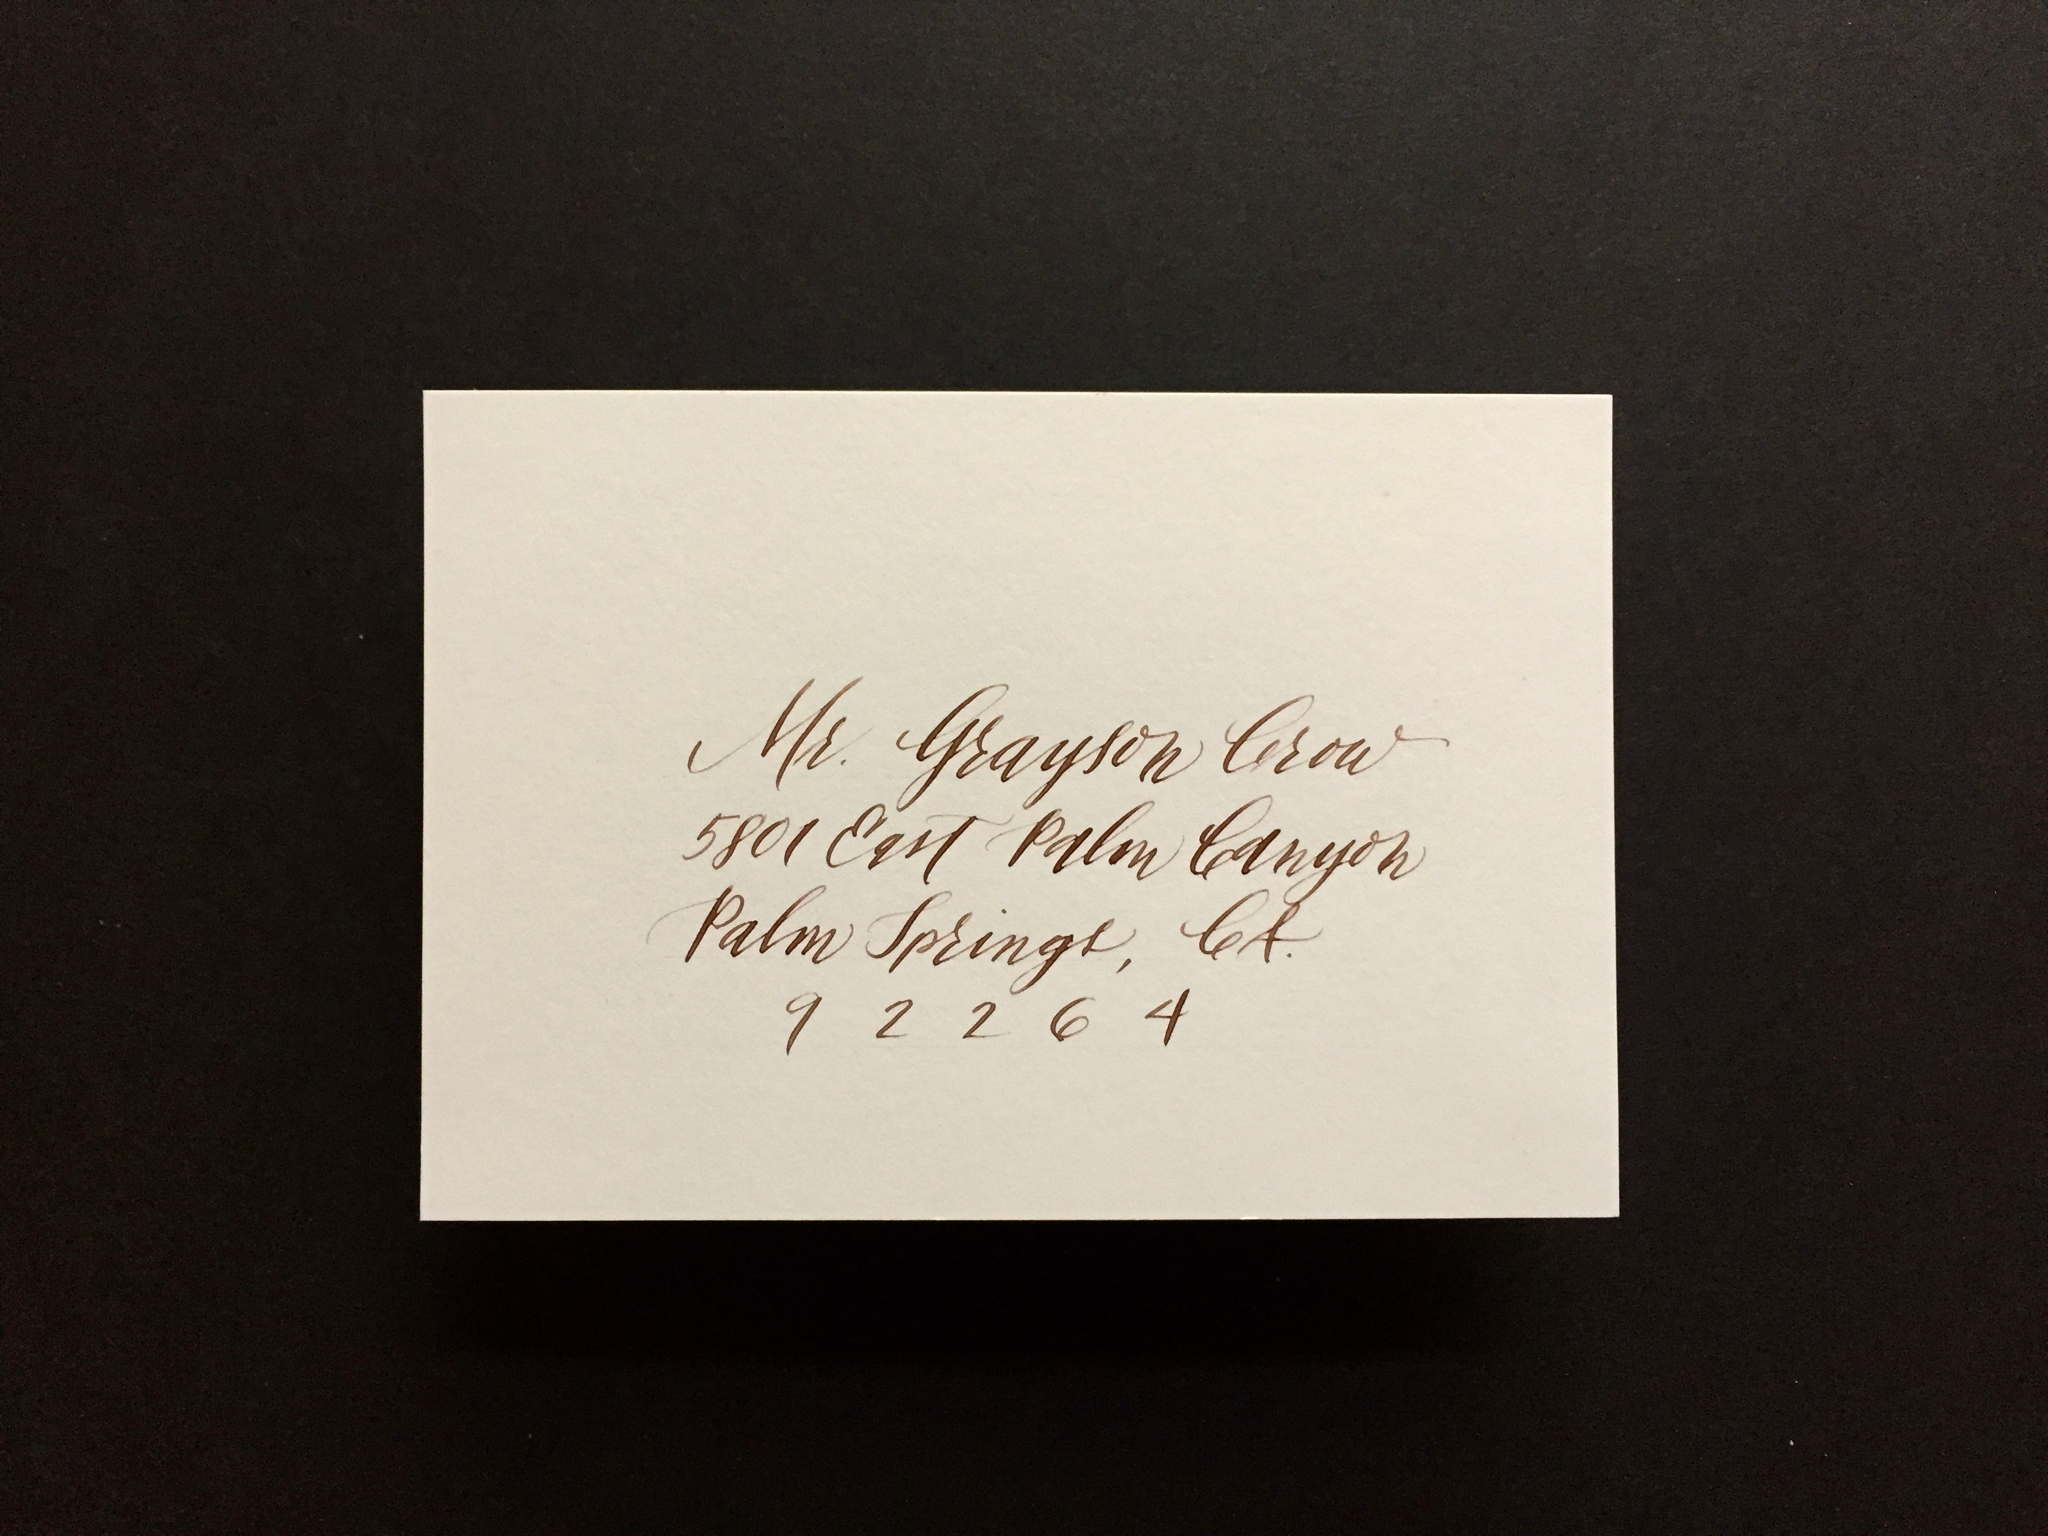 Mr. Grayson Crow
5801 East Palm Canyon
Palm Springs, CA.
9 2 2 6 4